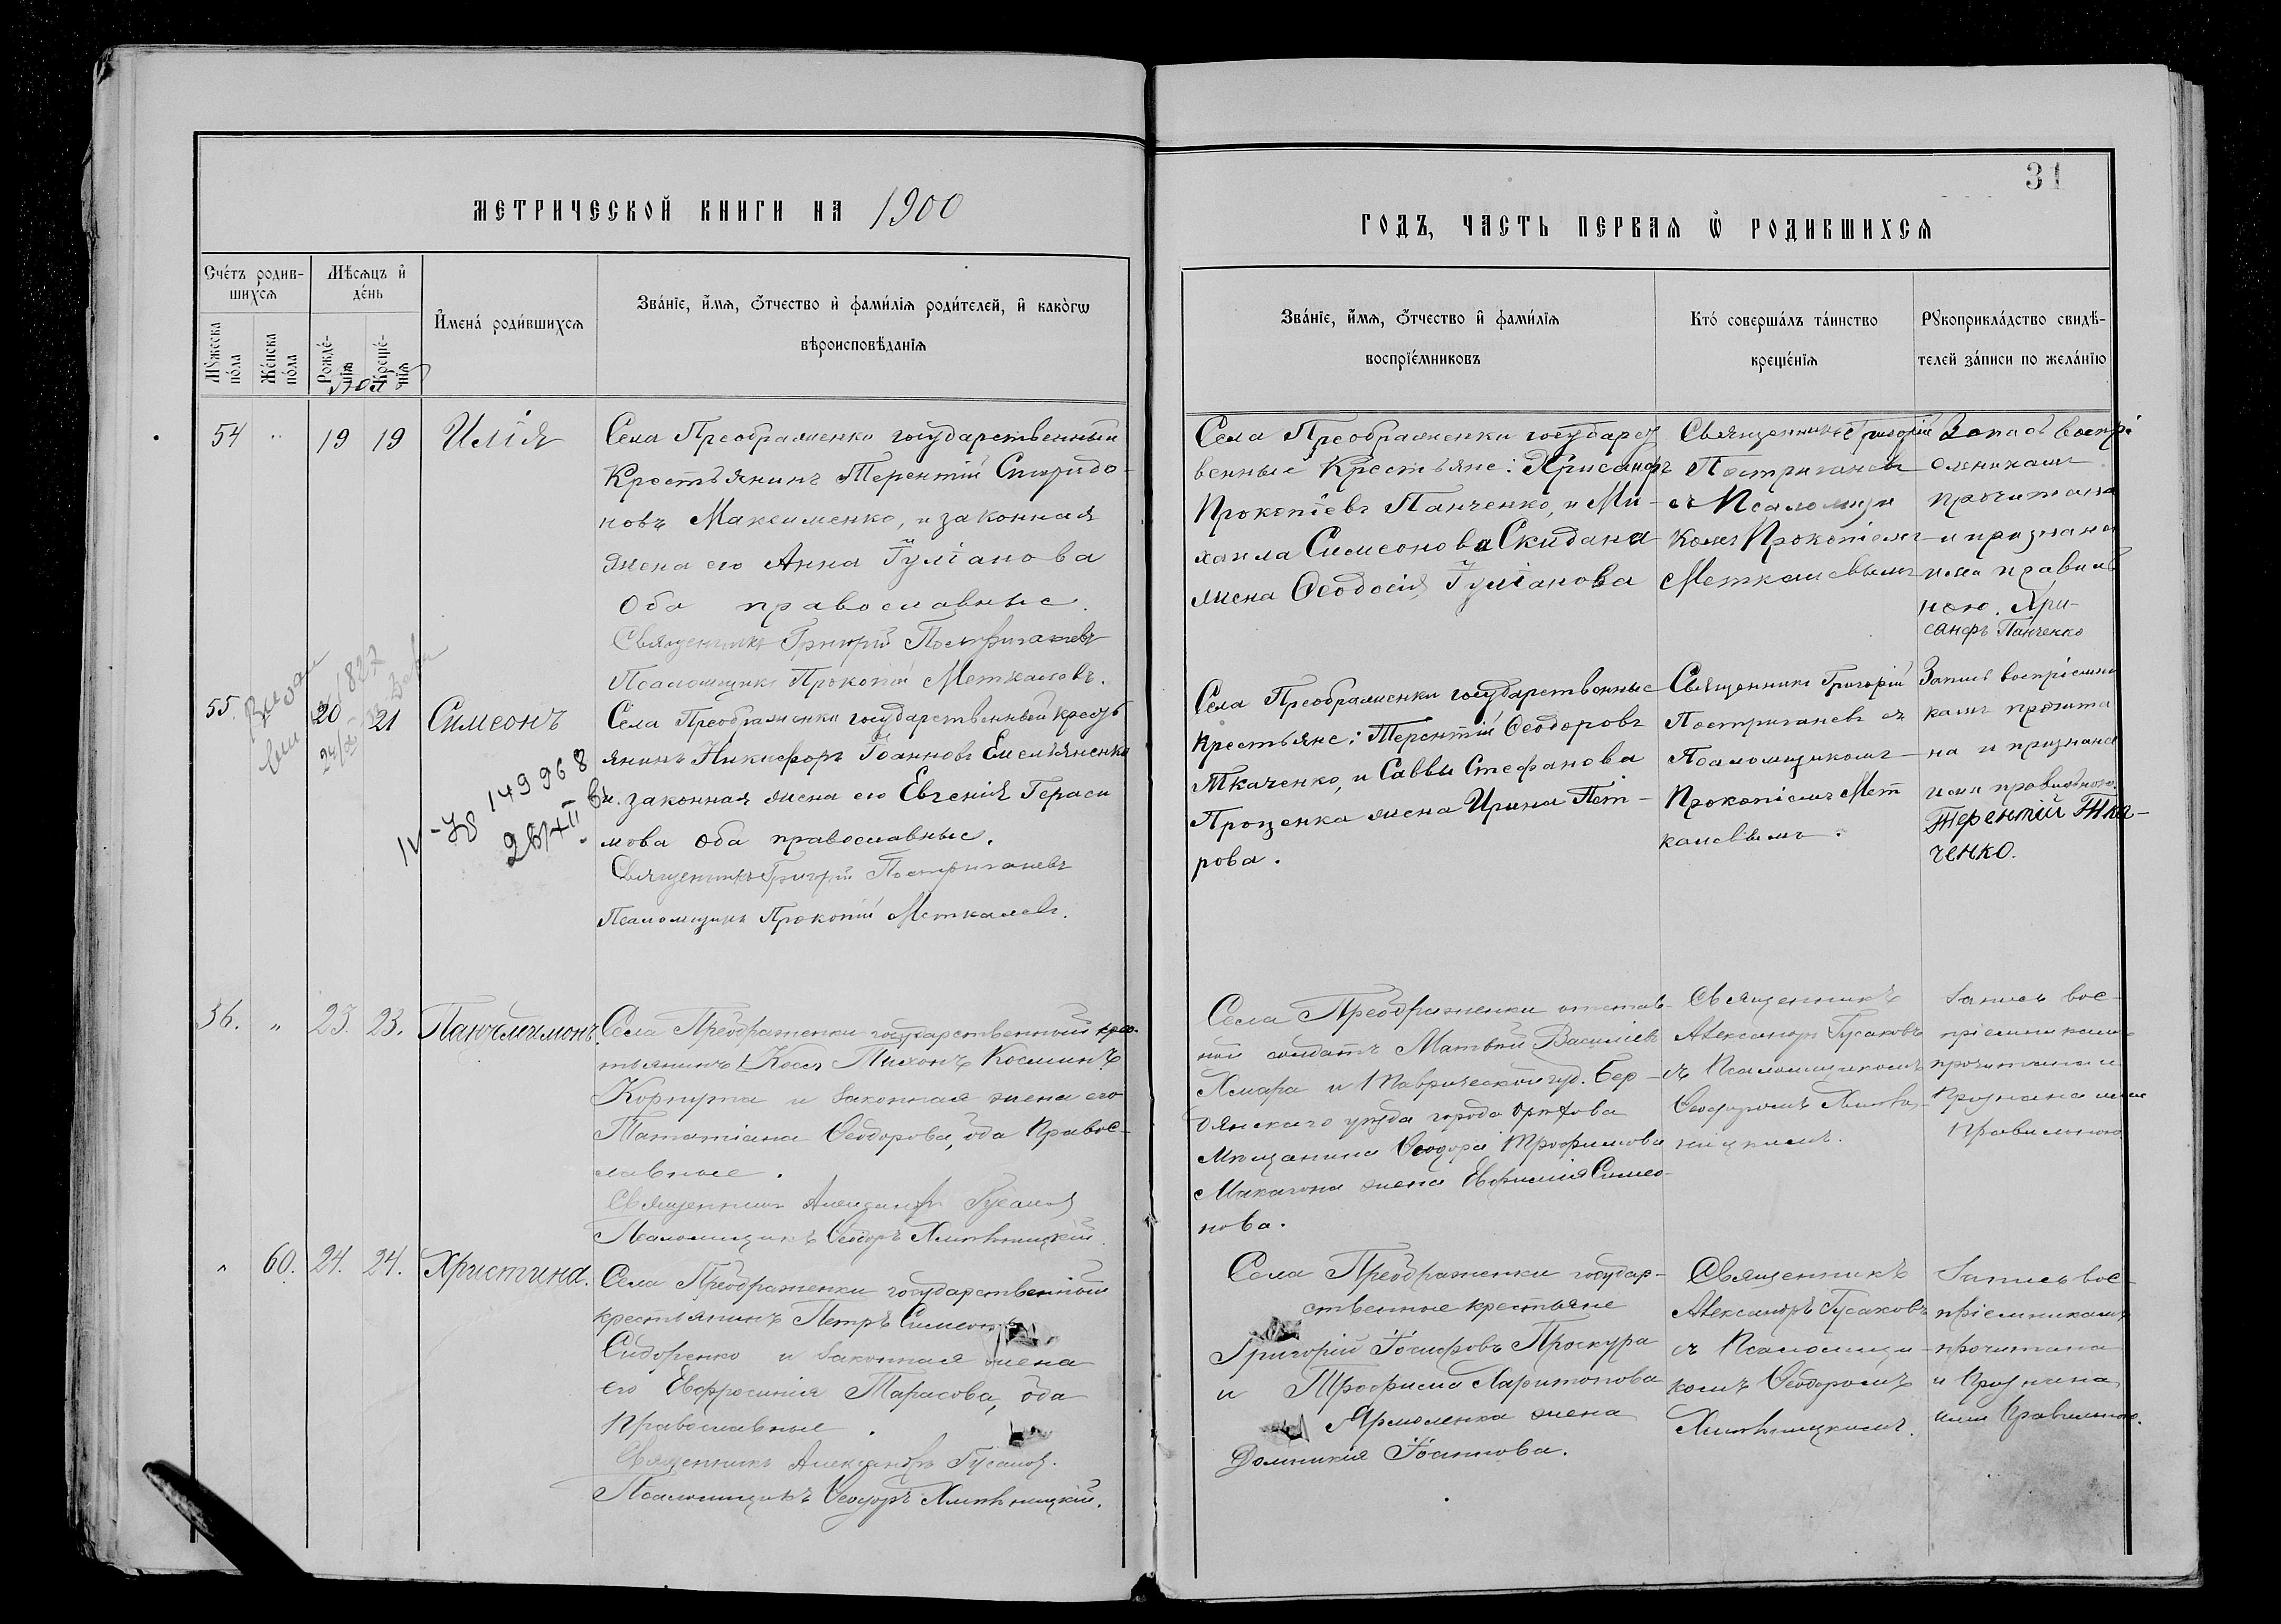 31
МЕТРИЧЕСКОЙ КНИГИ НА 1900
ГОДЪ, ЧАСТЬ ПЕРВАЯ Ѿ РОДИВШИХСЯ
Счéтъ родив-
шихсѧ
Мꙋжеска пóла
Жéнска пóла
Мѣсѧцъ и҆ дéнь
Рождé-
нїѧ
Крещé-
нїѧ
И҆мена́ роди́вшихсѧ
Зва́нїе, и҆́мѧ, ѻ҆́тчество и҆ фами́лїѧ роди́телей, и҆ како́гѡ
вѣроисповѣ́данїѧ
Зва́нїе, и҆́мѧ, ѻ҆́тчество и҆ фами́лїѧ
воспрїе́мниковъ
Кто́ соверша́лъ та́инство
креще́нїѧ
Рꙋкоприкла́дство свидѣ-
телей за́писи по жела́нїю
54 " 19 19 Илія
Села Преображенки государственный
Крестьянинъ Терентій Спиридо-
новъ Максименко, и законная
жена его Анна Іуліанова
Оба православные.
Священникъ Григорій Постриганевъ
Псаломщикъ Прокопій Меткалевъ.
Села Преображенки государст
венные Крестьяне: Хрисанфъ
Прокопіевъ Панченко, и Ми-
хаила Симеонова Скидана
жена Ѳеодосія Іуліанова
Священникъ Григорій
Постриганевъ
съ Псаломщи
комъ Прокопіемъ
Меткалевымъ
Запись воспрі
емникамъ
прочитана
и признана
ими правиль
ною. Хри-
санфъ Панченко
55. 20 21 Симеонъ
IV-
149968
28/XII
Села Преображенки государственный крест
янинъ Никифоръ Іоанновъ Емельяненко
и законная жена его Евгенія Гераси
мова Оба православные.
Священникъ Григорій Постриганевъ
Псаломщикъ Прокопій Меткалевъ.
Села Преображенки государственные
Крестьяне: Терентій Ѳеодоровъ
Ткаченко, и Саввы Стефанова
Проценка жена Ирина Пет-
рова.
Священникъ Григорій
Постриганевъ съ
Псаломщикомъ
Прокопіемъ Мет
калевымъ.
Запись воспріемни
камъ прочита
на и признана
ими правильною.
Терентій Тка-
ченко.
56. " 23. 23. Пантелеимонъ.
Села Преображенки государственный крес-
тьянинъ Тихонъ Косминъ
Корпута и законная жена его
Татіана Ѳеодорова, оба Правос-
лавные.
Священникъ Александръ Гусаковъ
Псаломщикъ Ѳеодоръ
Села Преображенки отстав-
ной солдатъ Матвѣй Василіевъ
Хмара и Таврической губ. Бер-
дянскаго уѣзда города Орѣхова
мѣщанина Ѳеодора Трофимова
Макагона жена Евфимія Симео-
нова.
Священникъ
Александръ Гусаковъ
съ Псаломщикомъ
Ѳеодоромъ
Запись вос-
пріемникамъ
прочитана и
Признана ими
Правильною.
" 60. 24. 24. Христина.
Села Преображенки государственный
крестьянинъ Петръ Симеоновъ
Сидоренко и законная жена
его Евфросинія Тарасова, оба
Православные.
Священникъ Александръ Гусаковъ.
Псаломщикъ Ѳеодоръ
Села Преображенки государ-
ственные крестьяне
Григорій Іосифовъ Проскура
и Трофима Харитонова
Ярмоленка жена
Домникія Іоаннова.
Священникъ
Александръ Гусаковъ
съ Псаломщи-
комъ Ѳеодоромъ
Запись вос-
пріемникамъ
прочитана
и Признана
ими Правильною.